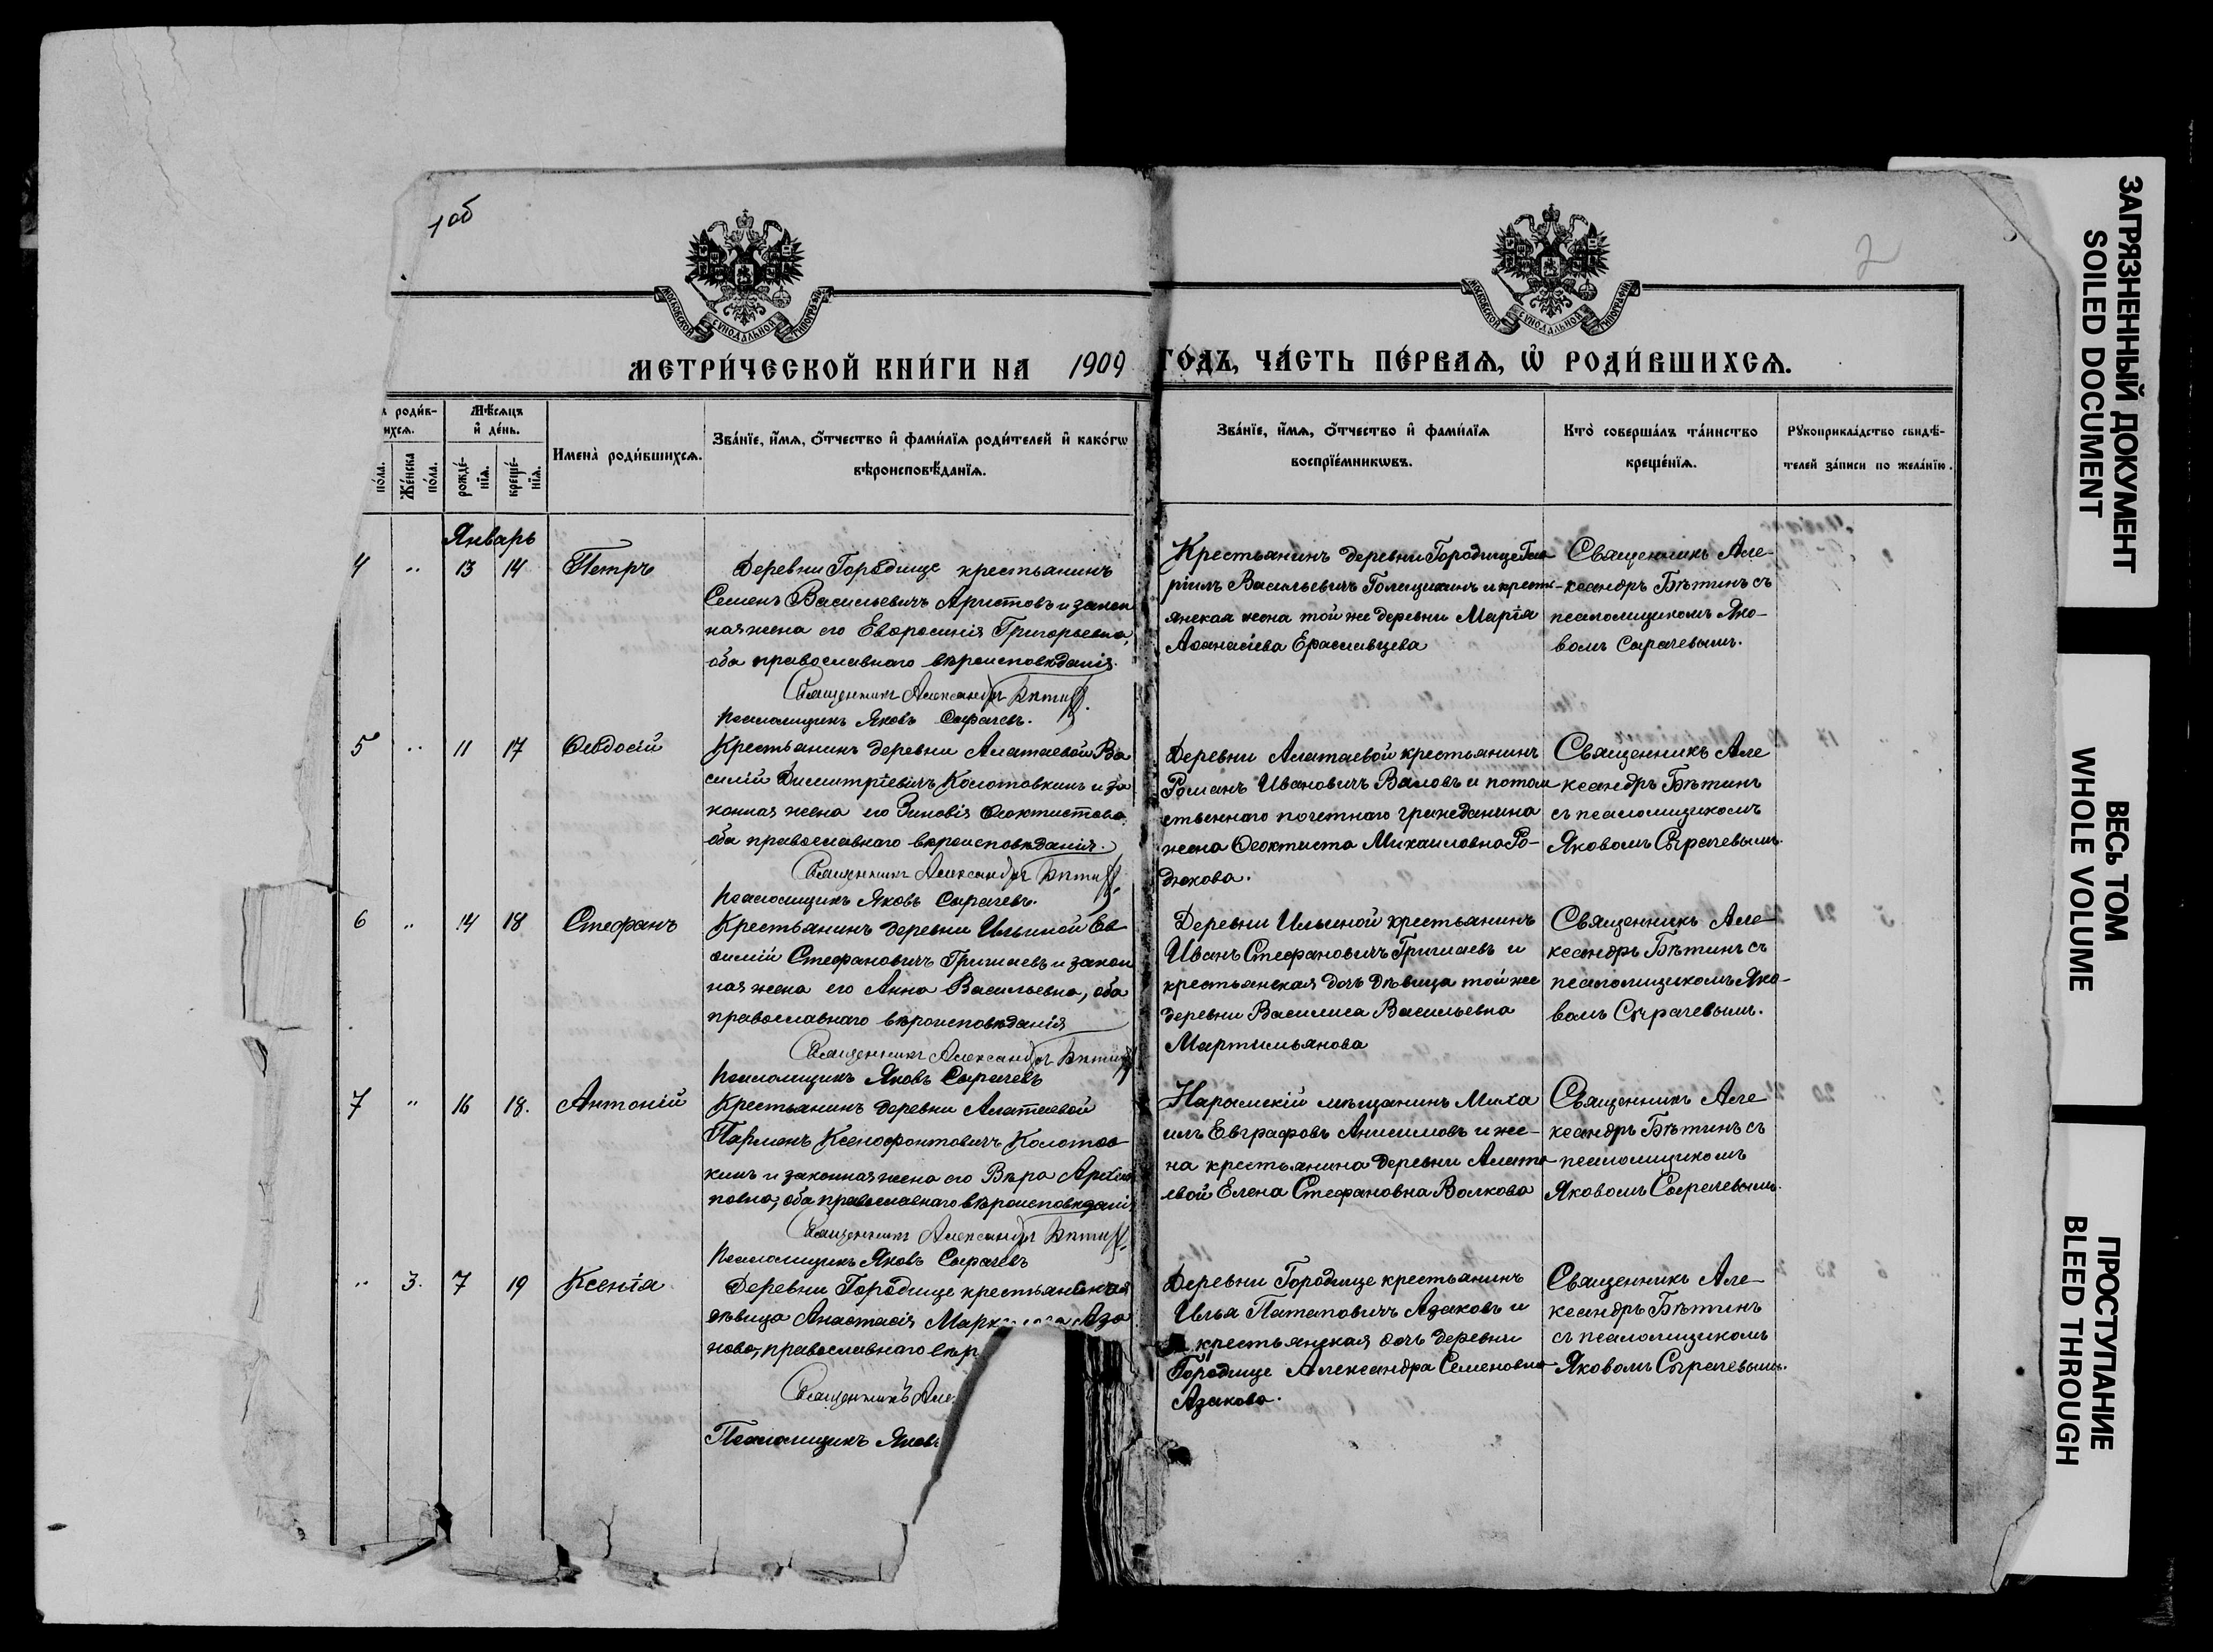 1 об
2
МОСКОВСКОЙ СѴНОДАЛЬНОЙ ТИПОГРАФІИ
МОСКОВСКОЙ СѴНОДАЛЬНОЙ ТИПОГРАФІИ
МЕТРИ́ЧЕСКОЙ КНИ́ГИ НА 1909 ГО́ДЪ, ЧА́СТЬ ПЕ́РВАѦ, Ѡ҆ РОДИ́ВШИХСѦ.
роди́в-
ихсѧ.
по́ла.
Же́нска
по́ла.
Мѣ́сѧцъ
и҆ де́нь.
рожде́-
нїѧ.
креще́-
нїѧ.
Имена̀ роди́вшихсѧ.
Зва́нїе, и҆́мѧ, ѻ҆́тчество и҆ фами́лїѧ роди́телей и҆ како́гѡ
вѣроисповѣ́данїѧ.
Зва́нїе, и҆́мѧ, ѻ҆́тчество и҆ фами́лїѧ
воспрїе́мникѡвъ.
Кто̀ соверша́лъ та́инство
креще́нїѧ.
Рꙋкоприкла́дство свидѣ́-
телей за́писи по жела́нїю.
Январь
4 " 13 14 Петръ
Деревни Городище крестьянинъ
Семенъ Васильевичъ Аристовъ и закон
ная жена его Евфросинія Григорьевна,
оба православнаго вѣроисповѣданія.
Священникъ Александръ Бѣтин
Псаломщикъ Яковъ Сырачевъ.
Крестьянинъ деревни Городище
Васильевичъ Голещихинъ и кресть-
янская жена той же деревни Марія
Аѳанасіева Ераславцева
Священникъ Але-
ксандръ Бѣтинъ съ
псаломщикомъ Яко-
вомъ Сырачевымъ.
5 " 11 17 Ѳеодосій
Крестьянинъ деревни Алатаевой Ва
силій Димитріевичъ Колотовкинъ и за
конная жена его Зиновія Ѳеоктистова
оба православнаго вѣроисповѣданія.
Священникъ Александръ Бѣтин
Псаломщикъ Яковъ Сырачевъ.
Деревни Алатаевой крестьянинъ
Романъ Ивановичъ Валовъ и потом
ственнаго почетнаго гражданина
жена Ѳеоктиста Михаиловна Ро-
дюкова.
Священникъ Але
ксандръ Бѣтинъ
съ псаломщикомъ
Яковомъ Сырачевымъ.
6 " 14 18 Стефанъ
Крестьянинъ деревни Ильиной Ев
ѳимій Стефановичъ Гришаевъ и закон
ная жена его Анна Васильевна, оба
православнаго вѣроисповѣданія
Священникъ Александръ Бѣтин
Псаломщикъ Яковъ Сырачевъ
Деревни Ильиной крестьянинъ
Иванъ Стефановичъ Гришаевъ и
крестьянская дочь дѣвица той же
деревни Василиса Васильевна
Мартемьянова
Священникъ Але-
ксандръ Бѣтинъ съ
псаломщикомъ Яко-
вомъ Сырачевымъ.
7 " 16 18. Антоній
Крестьянинъ деревни Алатаевой
Парменъ Ксенофонтовичъ Колотов
кинъ и законная жена его Вѣра Архип
повна, оба православнаго вѣроисповѣдані
Священникъ Александръ Бѣтин
Псаломщикъ Яковъ Сырачевъ
Нарымскій мѣщанинъ Миха
илъ Евграфовъ Анисимовъ и же-
на крестьянина деревни Алата-
евой Елена Стефановна Волкова
Священникъ Але
ксандръ Бѣтинъ съ
псаломщикомъ
Яковомъ Сырачевымъ.
" 3. 7 19 Ксенія
Деревни Городище крестьянская
дѣвица Анастасія
православнаго вѣр
Священникъ Але
Псаломщикъ Яковъ
Деревни Городище крестьянинъ
Илья Патаповичъ Азаковъ и
крестьянская дочь деревни
Городище Александра Семеновна
Азакова.
Священникъ Але-
ксандръ Бѣтинъ
съ псаломщикомъ
Яковомъ Сырачевымъ.
ЗАГРЯЗНЕННЫЙ ДОКУМЕНТ
SOILED DOCUMENT
ВЕСЬ ТОМ
WHOLE VOLUME
ПРОСТУПАНИЕ
BLEED THROUGH